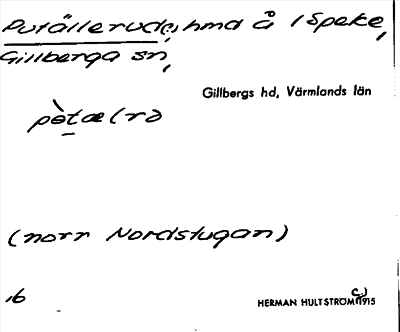 Putällerude, hmd å 1 Speke,
Gillberga sn,
Gillbergs hd, Värmlands län
pòtæ(rə
(norr Nordstugan)
16
HERMAN HULTSTRÖM (c.) 1915